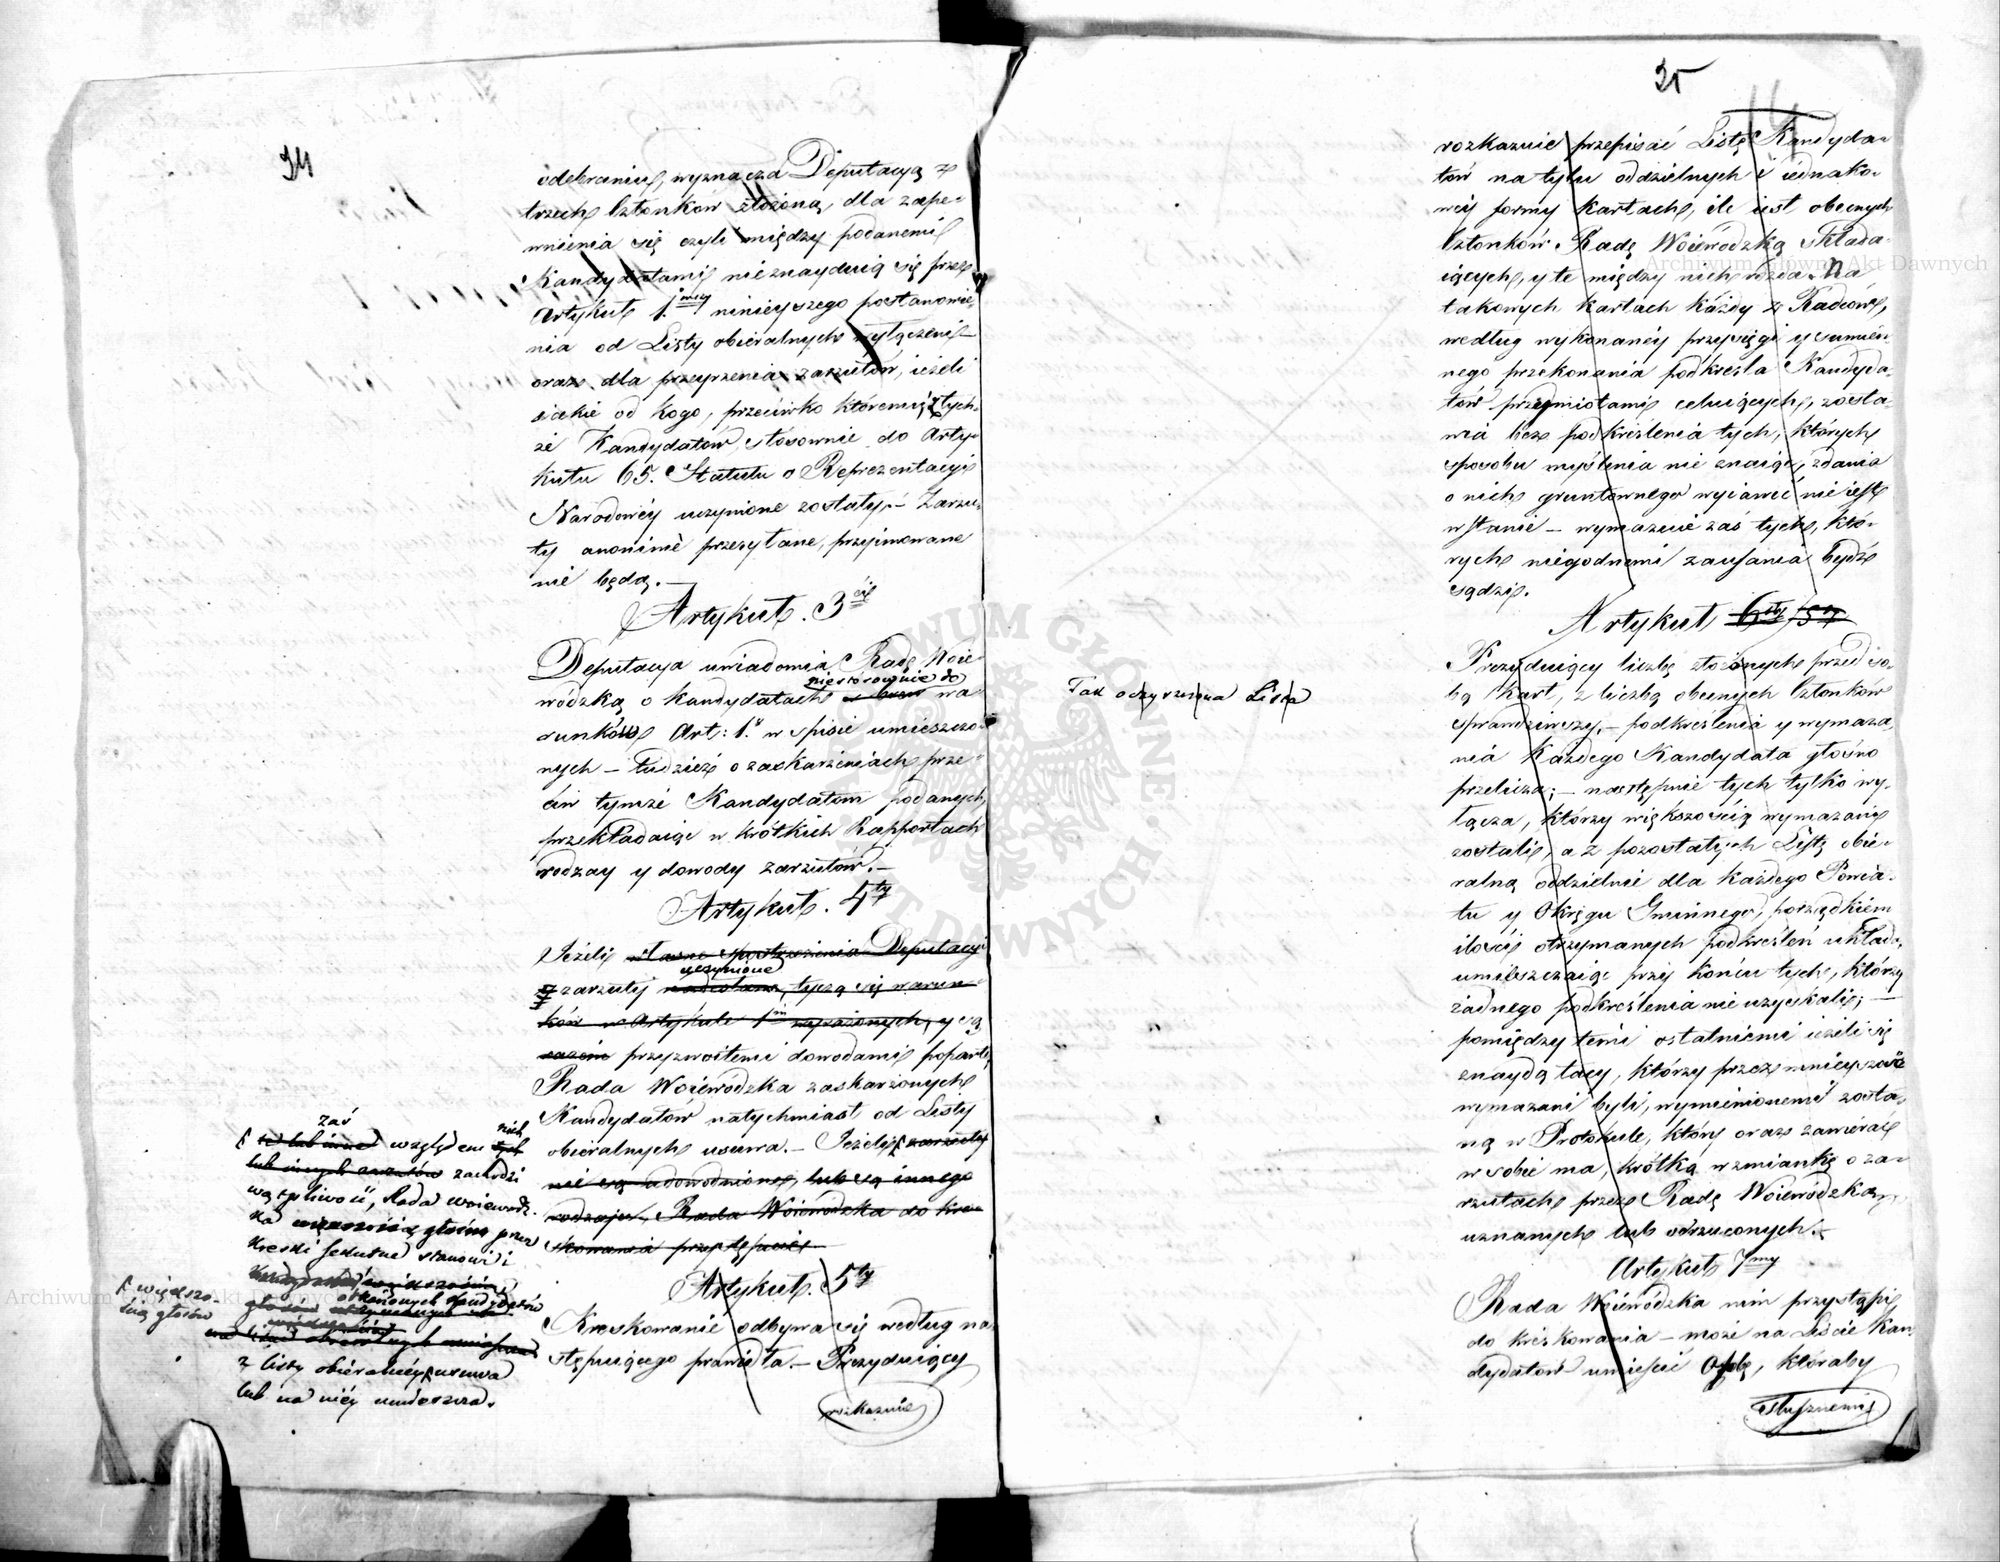 34
odebraniu, wyznacza Deputacyą z
trzech Członków złożoną, dla zape-
wnienia się czyli między podanemi
Kandydatami nieznayduią się przez
Artykuł 1.wszy ninieyszego postanowie-
nia od Listy obieralnych wyłączeni
oraz dla przeyrzenia zarzutów, ieżeli
iakie od kogo, przeciwko któremu z tych-
że Kandydatów, stosownie do Arty-
kułu 65. Statutu o Reprezentacyi
Narodowéy uczynione zostały. – Zarzu-
ty anonimè przesyłane, przyimowane
nie będą. –
Artykuł. 3ci
Deputacya uwiadomia Radę Woie-
niestosownie do
wódzką o kandydatach wa-
runków Art: 1. w spisie umieszczo-
nych – tudzież o zaskarżeniach prze-
ciw tymże Kandydatom podanych,
przekładaiąc w krótkich Rapportach
rodzay y dowody zarzutów. –
Artykuł. 4ty
Jeżeli własne spostrzeżenia Deputacyi
uczynione
zarzuty nadesłane, tyczą się warun-
ków w Artykule 1m wyrażonych, y są
przyzwoitemi dowodami poparte,
Rada Woiewódzka zaskarżonych
Kandydatów natychmiast od Listy
obieralnych usuwa. – Jeżeli zarzuty
nie są udowodnione, lub są innego
rodzaju, Rada Woiewódzka do kres-
kowania przystępuie. –
zaś
te lub inne względem tych nich
lub innych zarzutów zachodzi
wątpliwość, Rada woiewodz-
ka większością głosów przez
kreski sekretne stanowi i
większo-
ścią głosów
oskarżonych Kandydatów
z listy obieralnéy usuwa
lub na niéy umieszcza.
Artykuł. 5ty
Kreskowanie odbywa się według na-
stępuiącego prawidła. – Prezyduiący
rozkazuie
35
rozkazuie przepisać Listę Kandyda-
tów na tylu oddzielnych i iednako-
wéy formy kartach, ile iest obecnych
Członków Radę Woiewódzką składa-
iących, y te między nich rozda. Na
takowych kartach każdy z Radców,
według wykonanéy przysięgi y sumien-
nego przekonania podkreśla Kandyda-
tów przymiotami celuiących, zosta-
wia bez podkreślenia tych, których
sposobu myślenia nie znaiąc, zdania
o nich gruntownego wyiawić nie iest
w stanie – wymazuie zaś tych, któ-
rych niegodnemi zaufania bydź
sądzi.
Artykuł 6ty 5ty
Prezyduiący liczbę złożonych przed so-
bą kart, z liczbą obecnych Członków
sprawdziwszy, – podkreślenia y wymaza-
nia każdego Kandydata głośno
przelicza; – następnie tych tylko wy-
łącza, którzy większością wymazani
zostali, a z pozostałych Listę obie-
ralną oddzielnie dla każdego Powia-
tu y Okręgu Gminnego, porządkiem
ilości otrzymanych podkreśleń układa,
umieszczaiąc przy końcu tych, którzy
żadnego podkreślenia nie uzyskali; –
pomiędzy temi ostatniemi ieżeli się
znaydą tacy, którzy przez mnieyszość
wymazani byli, wymienionemi zosta-
ną w Protokule, który oraz zawierać
w sobie ma, krótką wzmiankę o za-
rzutach przez Radę Woiewódzką,
uznanych lub odrzuconych.
Tak oczyszczona Lista
Artykuł 7my
Rada Woiewódzka nim przystąpi
do kreskowania – może na Liście Kan-
dydatów umieścić Osobę, któraby
słusznemi
Archiwum Główne Akt Dawnych
Archiwum Główne Akt Dawnych
ARCHIWUM GŁÓWNE AKT DAWNYCH